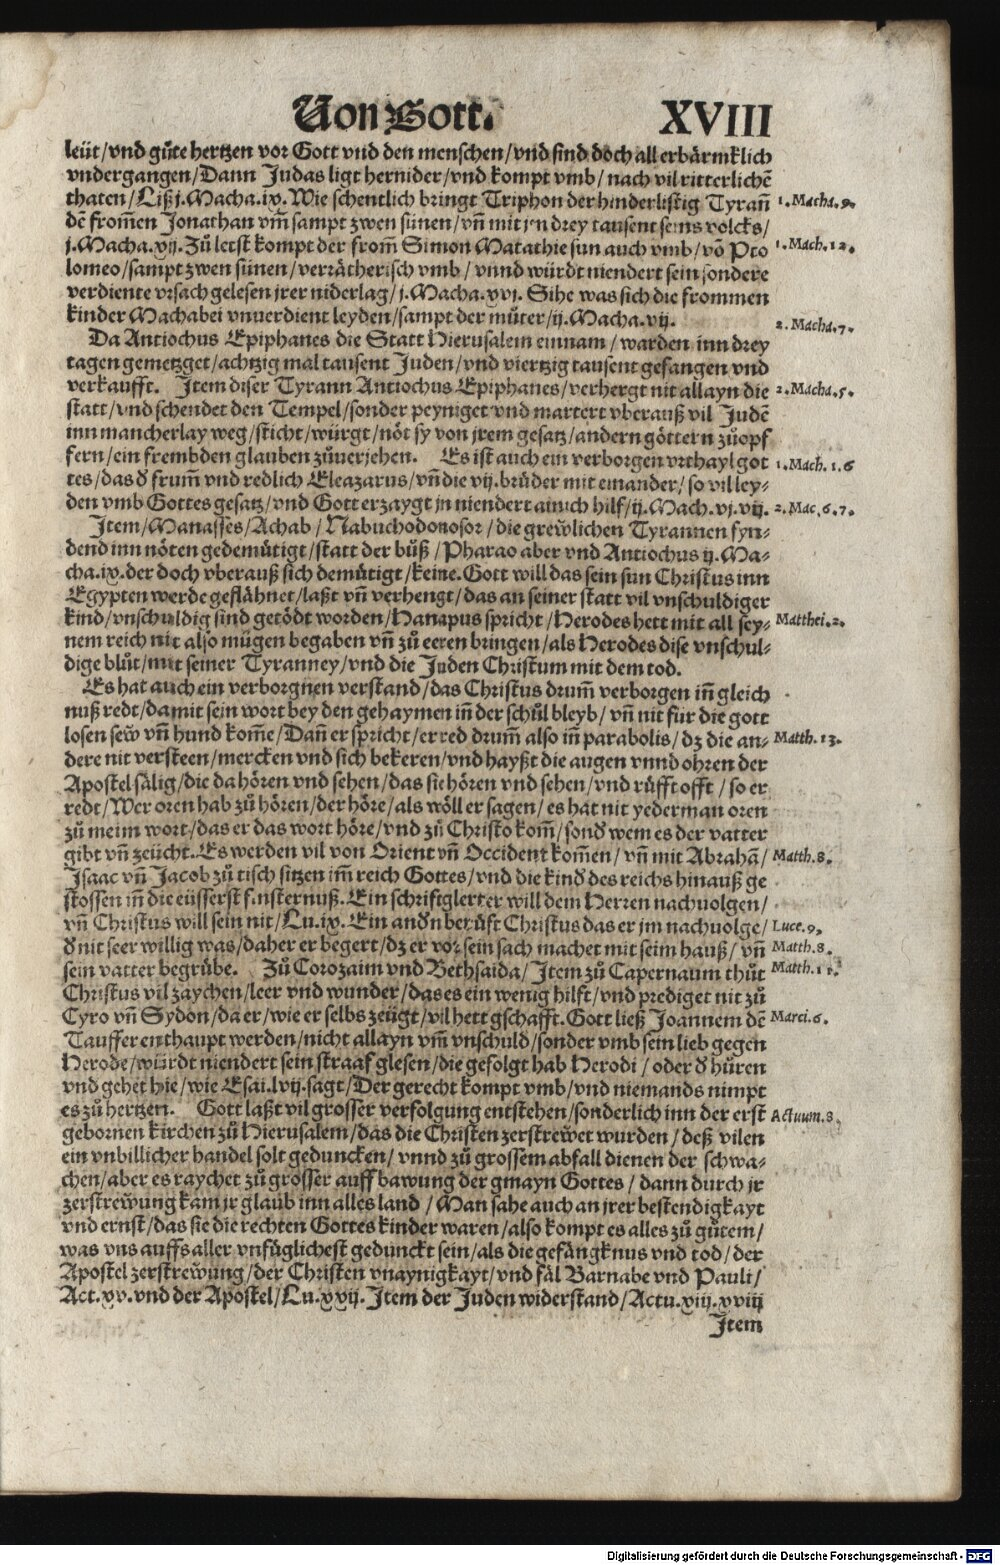 Von Gott. XVIII
leüt/vnd gůte hertzen vor Gott vnd den menschen/vnd sind doch all erbärmklich
vndergangen/Dann Judas ligt hernider/vnd kompt vmb/nach vil ritterlichē
thaten/Liß j.Macha.ix.Wie schentlich bringt Triphon der hinderlistig Tyrañ
1.Macha.9.
dē from̃en Jonathan vm̃ sampt zwen sünen/vñ mit jn drey tausent seins volcks/
j.Macha.xij.Zů letst kompt der from̃ Simon Matathie sun auch vmb/vō Pto
1.Mach.12.
lomeo/sampt zwen sünen/verrätherisch vmb/vnnd würdt niendert sein sondere
verdiente vrsach gelesen jrer niderlag/j.Macha.xvj. Sihe was sich die frommen
kinder Machabei vnuerdient leyden/sampt der můter/ij.Macha.vij.
2.Macha.7.
Da Antiochus Epiphanes die Statt Hierusalem einnam/warden inn drey
tagen gemetzget/achtzig mal tausent Juden/vnd viertzig tausent gefangen vnd
verkaufft. Item diser Tyrann Antiochus Epiphanes/verhergt nit allayn die
2.Macha.5.
statt/vnd schendet den Tempel/sonder peyniget vnd martert vberauß vil Judē
inn mancherlay weg/sticht/würgt/nöt sy von jrem gesatz/andern göttern zůopf
fern/ein frembden glauben zůverjehen. Es ist auch ein verborgen vrthayl got
1.Mach.1.6
tes/das d̄ frum̃ vnd redlich Eleazarus/vñ die vij.brüder mit einander/so vil ley-
den vmb Gottes gesatz/vnd Gott erzaygt jn niendert ainich hilf/ij.Mach.vj.vij.
2.Mac.6.7.
Item/Manasses/Achab/Nabuchodonosor/die grewlichen Tyrannen fyn-
dend inn nöten gedemütigt/statt der bůß/Pharao aber vnd Antiochus ij.Ma-
cha.ix.der doch vberauß sich demütigt/keine.Gott will das sein sun Christus inn
Egypten werde geflähnet/laßt vñ verhengt/das an seiner statt vil vnschuldiger
kind/vnschuldig sind getödt worden/Hanapus spricht/Herodes hett mit all sey-
Matthei.2.
nem reich nit also mügen begaben vñ zů eeren bringen/als Herodes dise vnschul-
dige blůt/mit seiner Tyranney/vnd die Juden Christum mit dem tod.
Es hat auch ein verborgnen verstand/das Christus drum̃ verborgen iñ gleich
nuß redt/damit sein wort bey den gehaymen iñ der schůl bleyb/vñ nit für die gott
losen sew vñ hund kom̃e/Dañ er spricht/er red drum̃ also iñ parabolis/dz die an-
Matth.13.
dere nit versteen/mercken vnd sich bekeren/vnd hayßt die augen vnnd ohren der
Apostel sälig/die da hören vnd sehen/das sie hören vnd sehen/vnd růfft offt/so er
redt/Wer oren hab zů hören/der höre/als wöll er sagen/es hat nit yederman oren
zů meim wort/das er das wort höre/vnd zů Christo kom̃/sond̄ wem es der vatter
gibt vñ zeücht.Es werden vil von Orient vñ Occident kom̃en/vñ mit Abrahā/
Matth.8.
Isaac vñ Jacob zů tisch sitzen im̃ reich Gottes/vnd die kind̄ des reichs hinauß ge
stossen iñ die eüsserst finsternuß.Ein schrifftglerter will dem Herren nachuolgen/
vñ Christus will sein nit/Lu.ix.Ein and̄n berůft Christus das er jm nachuolge/
Luce.9.
d̄ nit seer willig was/daher er begert/dz er vor sein sach machet mit seim hauß/vñ
Matth.8.
sein vatter begrübe. Zů Corozaim vnd Bethsaida/Item zů Capernaum thůt
Matth.11.
Christus vil zaychen/leer vnd wunder/das es ein wenig hilft/vnd prediget nit zů
Cyro vñ Sydon/da er/wie er selbs zeügt/vil hett gschafft.Gott ließ Joannem dē
Marci.6.
Tauffer enthaupt werden/nicht allayn vm̃ vnschuld/sonder vmb sein lieb gegen
Herode/würdt niendert sein straaf glesen/die gefolgt hab Herodi/oder d̄ hůren
vnd gehet hie/wie Esai.lvij.sagt/Der gerecht kompt vmb/vnd niemands nimpt
es zů hertzen. Gott laßt vil grosser verfolgung entstehen/sonderlich inn der erst
Actuum.8.
gebornen kirchen zů Hierusalem/das die Christen zerstrewet wurden/deß vilen
ein vnbillicher handel solt geduncken/vnnd zů grossem abfall dienen der schwa-
chen/aber es raychet zů grosser auffbawung der gmayn Gottes/dann durch jr
zerstrewung kam jr glaub inn alles land/Man sahe auch an jrer bestendigkayt
vnd ernst/das sie die rechten Gottes kinder waren/also kompt es alles zů gůtem/
was vns auffs aller vnfüglichest gedunckt sein/als die gefängknus vnd tod/der
Apostel zerstrewung/der Christen vnaynigkayt/vnd fäl Barnabe vnd Pauli/
Act.xv.vnd der Apostel/Lu.xxij.Item der Juden widerstand/Actu.xiij.xviij
Item
Digitalisierung gefördert durch die Deutsche Forschungsgemeinschaft - DFG